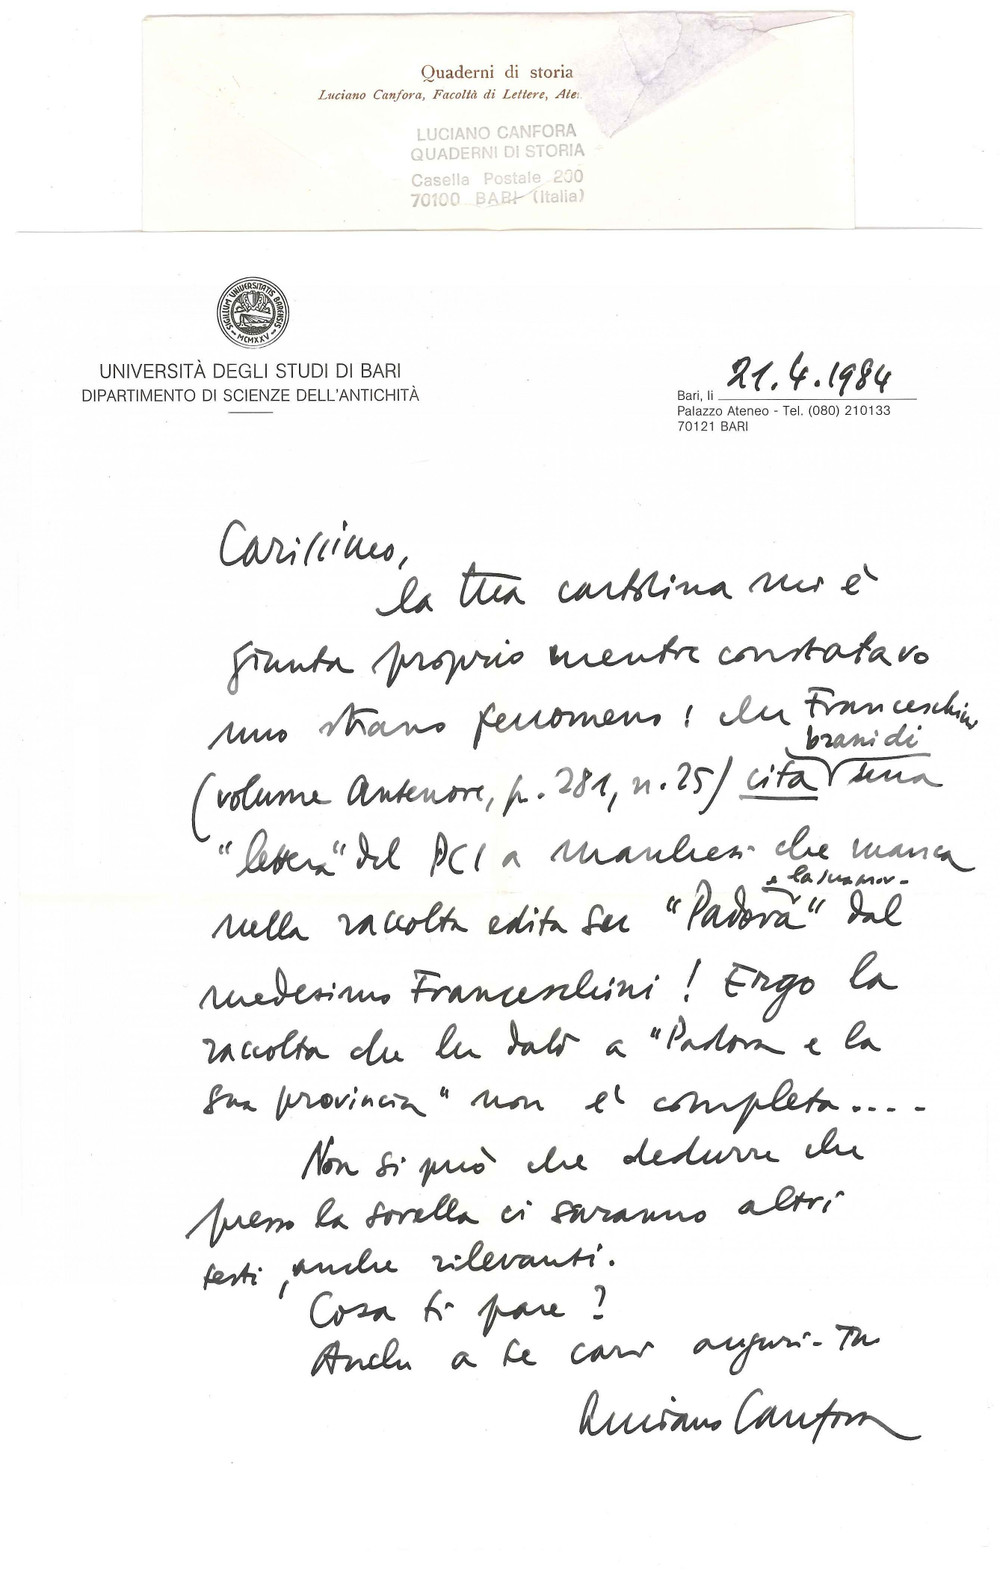 Quaderni di storia
Luciano Canfora, Facoltà di Lettere, Ate
LUCIANO CANFORA
QUADERNI DI STORIA
Casella Postale 200
70100 BARI (Italia)
SIGILLUM UNIVERSITATIS BARENSIS
MCMXXV
UNIVERSITÀ DEGLI STUDI DI BARI
DIPARTIMENTO DI SCIENZE DELL'ANTICHITÀ
Bari, li 21.4.1984
Palazzo Ateneo - Tel. (080) 210133
70121 BARI
Carissimo,
la tua cartolina mi è
giunta proprio mentre constatavo
uno strano fenomeno: che Franceschini
brani di
(volume Antenore, p. 281, n. 25) cita una
"lettera" del PCI a Marchesi che manca
e la sua prov.
nella raccolta edita su "Padova" dal
medesimo Franceschini! Ergo la
raccolta che lui dato a "Padova e la
sua provincia" non è completa....
Non si può che dedurre che
presso la sorella ci saranno altri
testi, anche rilevanti.
Cosa ti pare?
Anche a te cari auguri - Tuo
Luciano Canfora